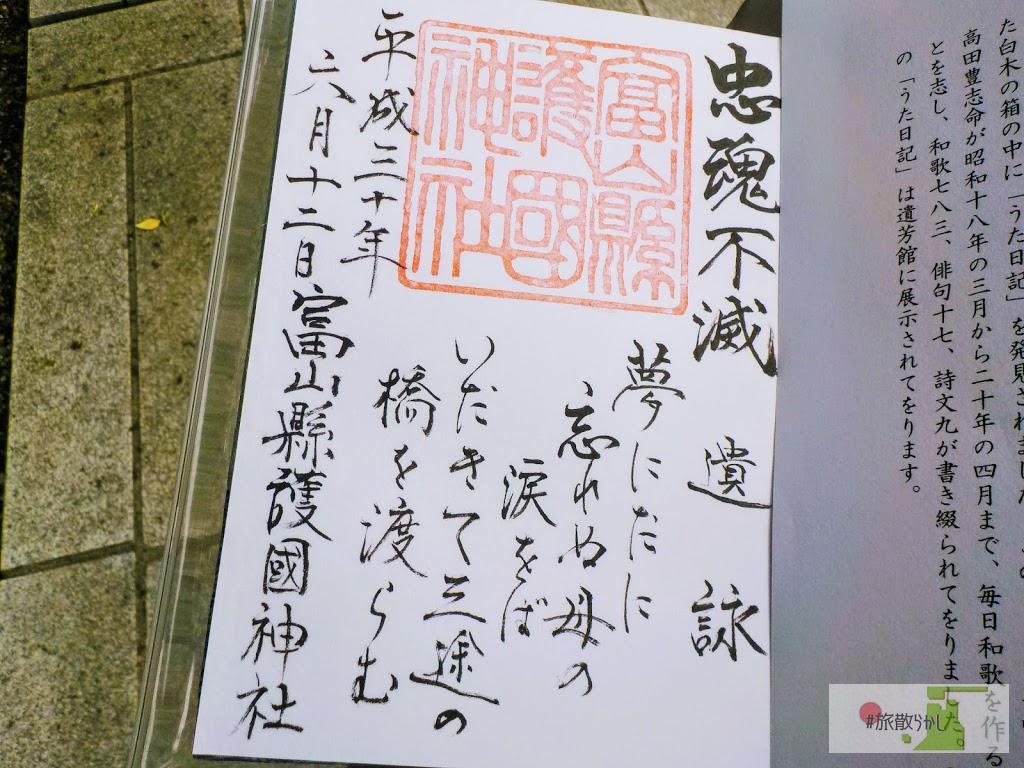 た白木の箱の中に「うた日記」を発見されました
高田豊志命が昭和十八年の三月から二十年の四月まで、毎日和歌を作る
とを志し、和歌七八三、俳句十七、詩文九が書き綴られてをりました。
の「うた日記」は遺芳館に展示されてをります。
忠魂不滅 遺詠
夢にだに
忘れぬ母の
涙をば
いだきて三途の
橋を渡らむ
富山縣
護國
神社
平成三十年
六月十二日 富山縣護國神社
#旅散らかした。